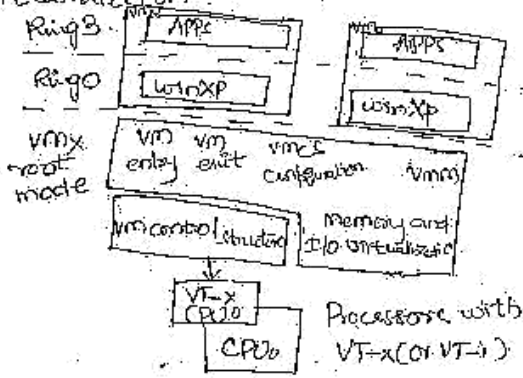 Ring3
Apps
Apps
Ring0
WinXP
WinXP
VMX root mode
VM entry
VM exit
VMCS configuration
VMM
VM control structure
Memory and I/O virtualization
VT-x
CPU0
CPU0
Processore with
VT-x (or VT-i)